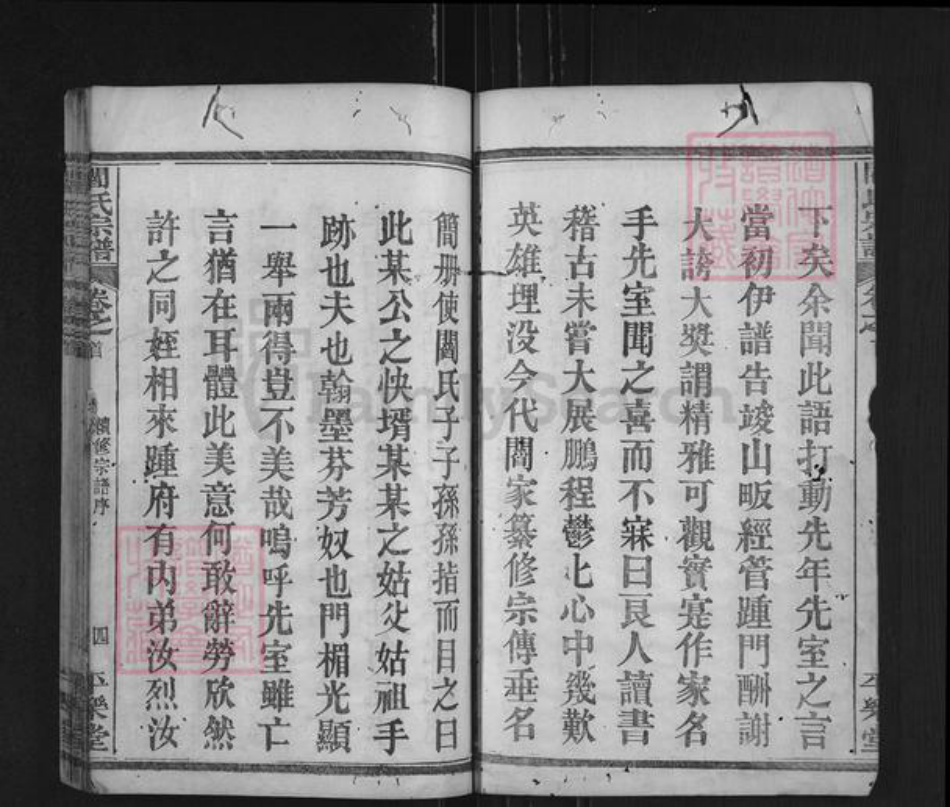 下矣余聞此語打動先年先室之言
當初伊譜告竣山畈經管踵門酬謝
大誇大獎謂精雅可觀實寔作家名
手先室聞之喜而不寐曰良人讀書
稽古未嘗大展鵬程鬱匕心中幾歎
英雄埋没今代閻家纂修宗傳垂名
簡册使閻氏子子孫孫指而目之曰
此某公之快壻某某之姑父姑祖手
跡也夫也翰墨芬芳奴也門楣光顯
一舉兩得豈不美哉嗚呼先室雖亡
言猶在耳體此美意何敢辭勞欣然
許之同姪相來踵府有内弟汝烈汝
閻氏宗譜
卷之首
續修宗譜序
四
樂堂
FamilySearch